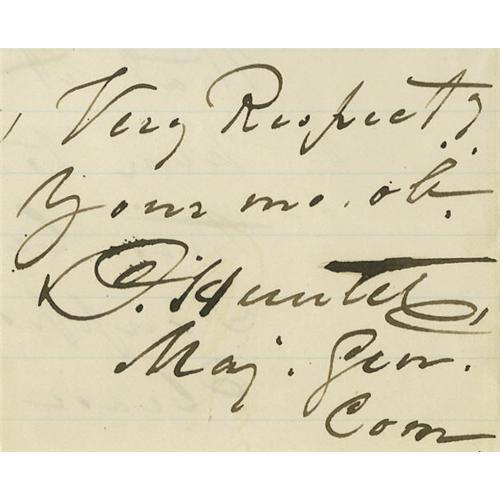 Very Respect'y
Your mo. ob.
D. Hunter,
Maj. Gen.
Com